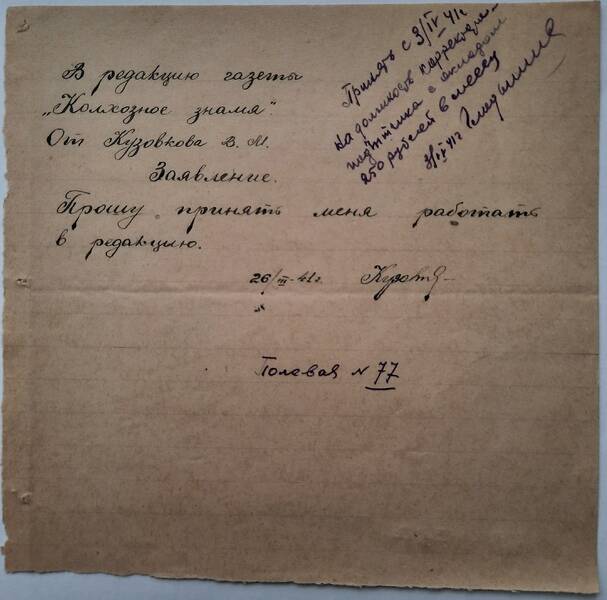 В редакцию газеты
„Колхозное знамя".
От Кузовкова В. М.
Заявление.
Прошу принять меня работать
в редакцию.
26/III-41г.
Полевая № 77
Принять с 3/IV 41г
на должность корректора-
с окладом
250 рублей в месяц
3/IV 41г